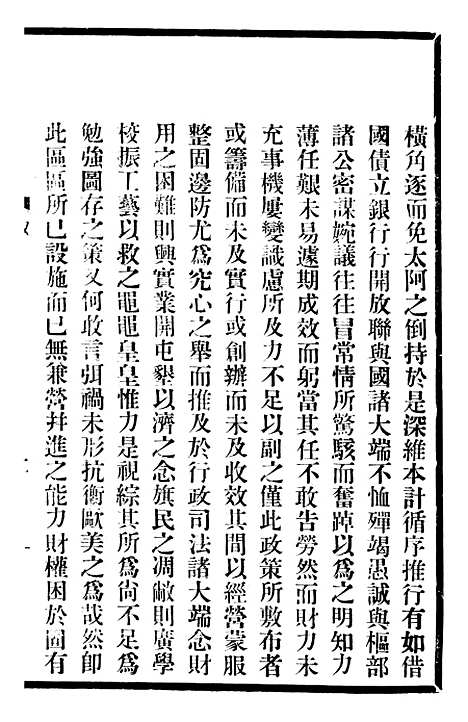 橫角逐而免太阿之倒持於是深維本計循序推行有如借
國債立銀行行開放聯與國諸大端不恤殫竭愚誠與樞部
諸公密謀婉議往往冒常情所驚駭而奮踔以爲之明知力
薄任艱未易遽期成效而躬當其任不敢告勞然而財力未
充事機屢變識慮所及力不足以副之僅此政策所敷布者
或籌備而未及實行或創辦而未及收效其間以經營蒙服
整固邊防尤爲究心之舉而推及於行政司法諸大端念財
用之困難則興實業開屯墾以濟之念旗民之凋敝則廣學
校振工藝以救之黽黽皇皇惟力是視綜其所爲尙不足爲
勉強圖存之策又何敢言弭禍未形抗衡歐美之爲哉然卽
此區區所已設施而已無兼營幷進之能力財權困於固有